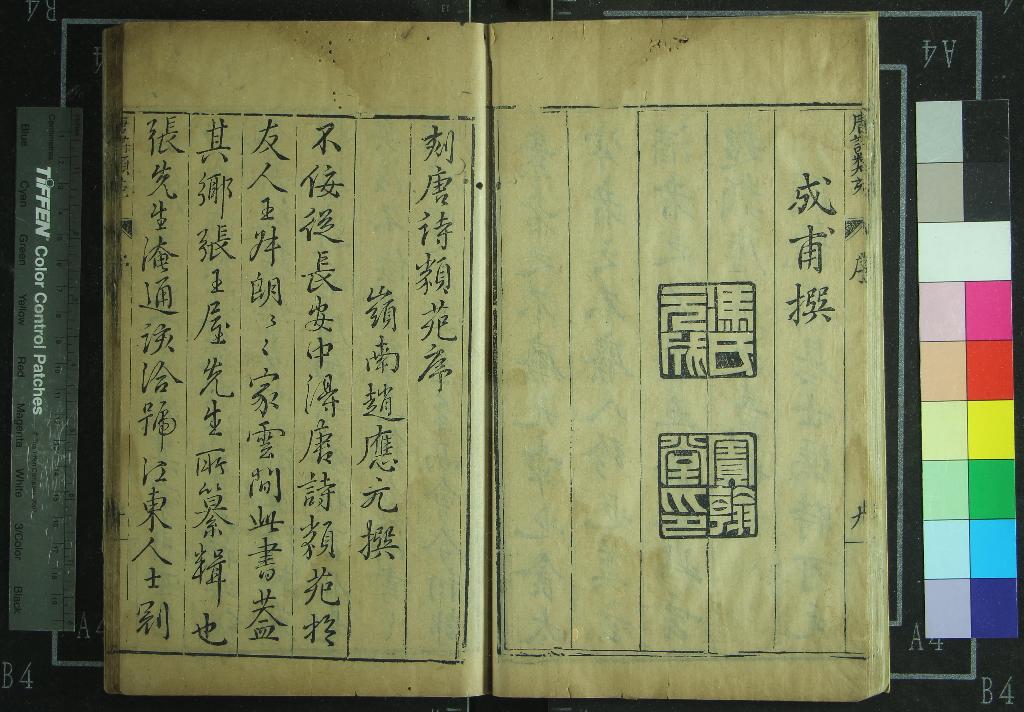 唐詩類苑
序
九
成甫撰
馮氏元成
寶翰堂印
刻唐詩類苑序
嶺南趙應元撰
不佞從長安中得唐詩類苑於
友人王姅朗〻〻家雲間此書蓋
其鄉張王屋先生所纂輯也
張先生淹通該洽號江東人士剧
TIFFEN Color Control Patches
Blue
Cyan
Green
Yellow
Red
Magenta
White
3/Color
Black
Centimetres
A4
A4
A4
B4
B4